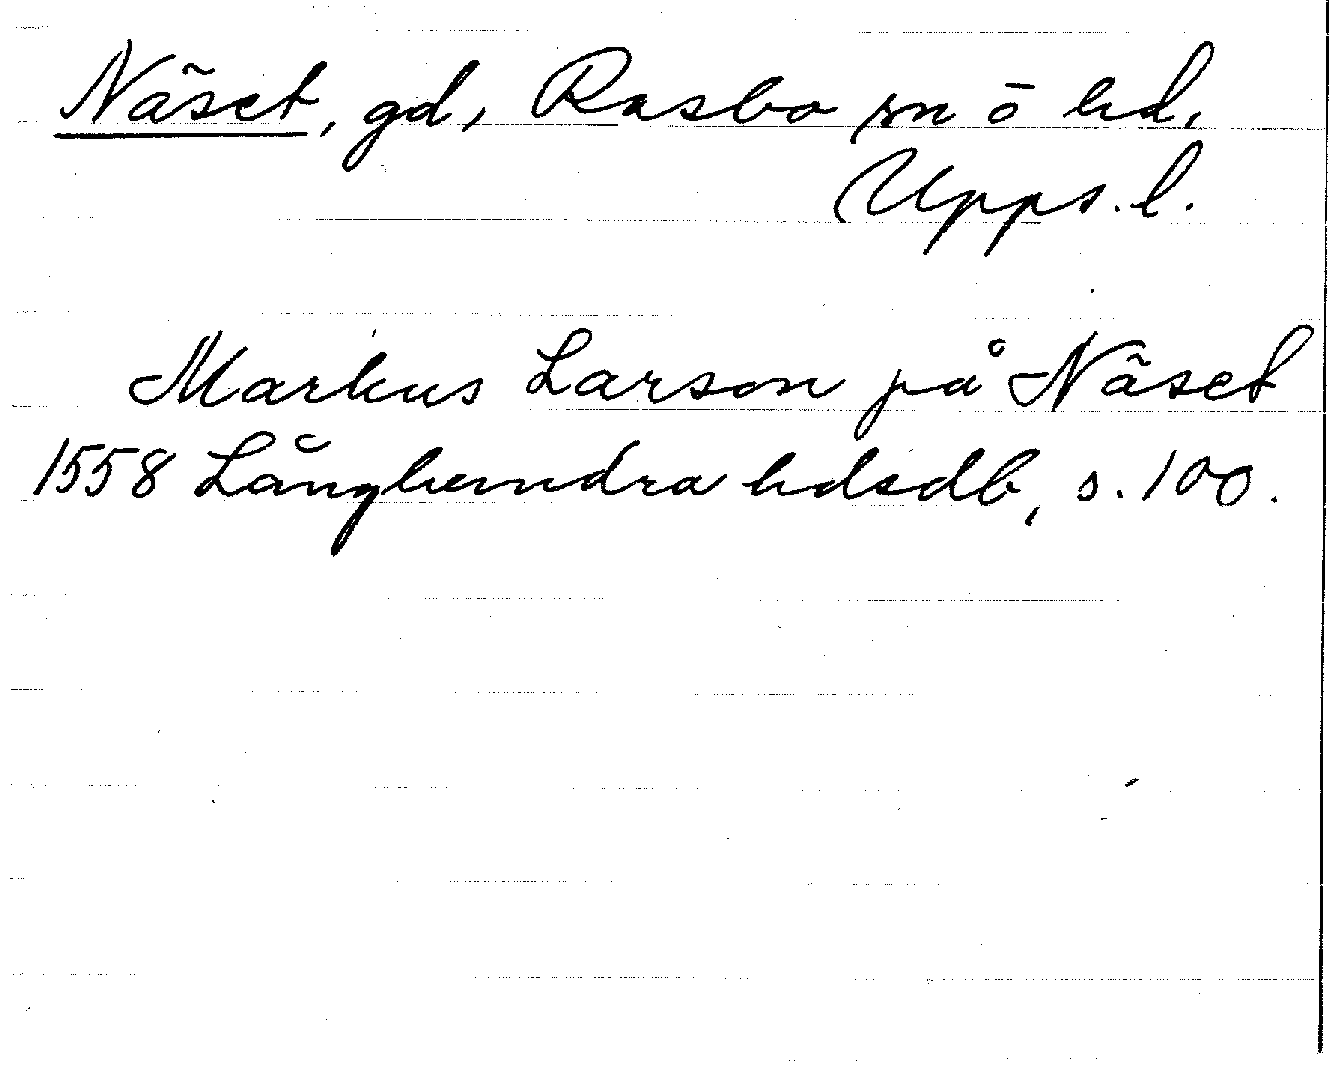 Näset, gd, Rasbo sn o hd,
Upps. l.
Markus Larson på Näset
1558 Långhundra hdsdb, s. 100.